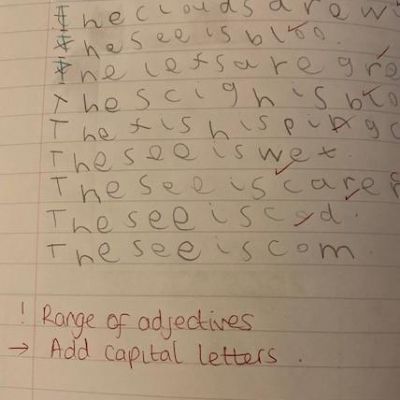 The clouds are w
The see is bloo.
The lefs are gre
The scigh is blo
The fish is pinkg
The see is wet.
The see is care
The see is cod.
The see is com
! Range of adjectives
→ Add capital letters.